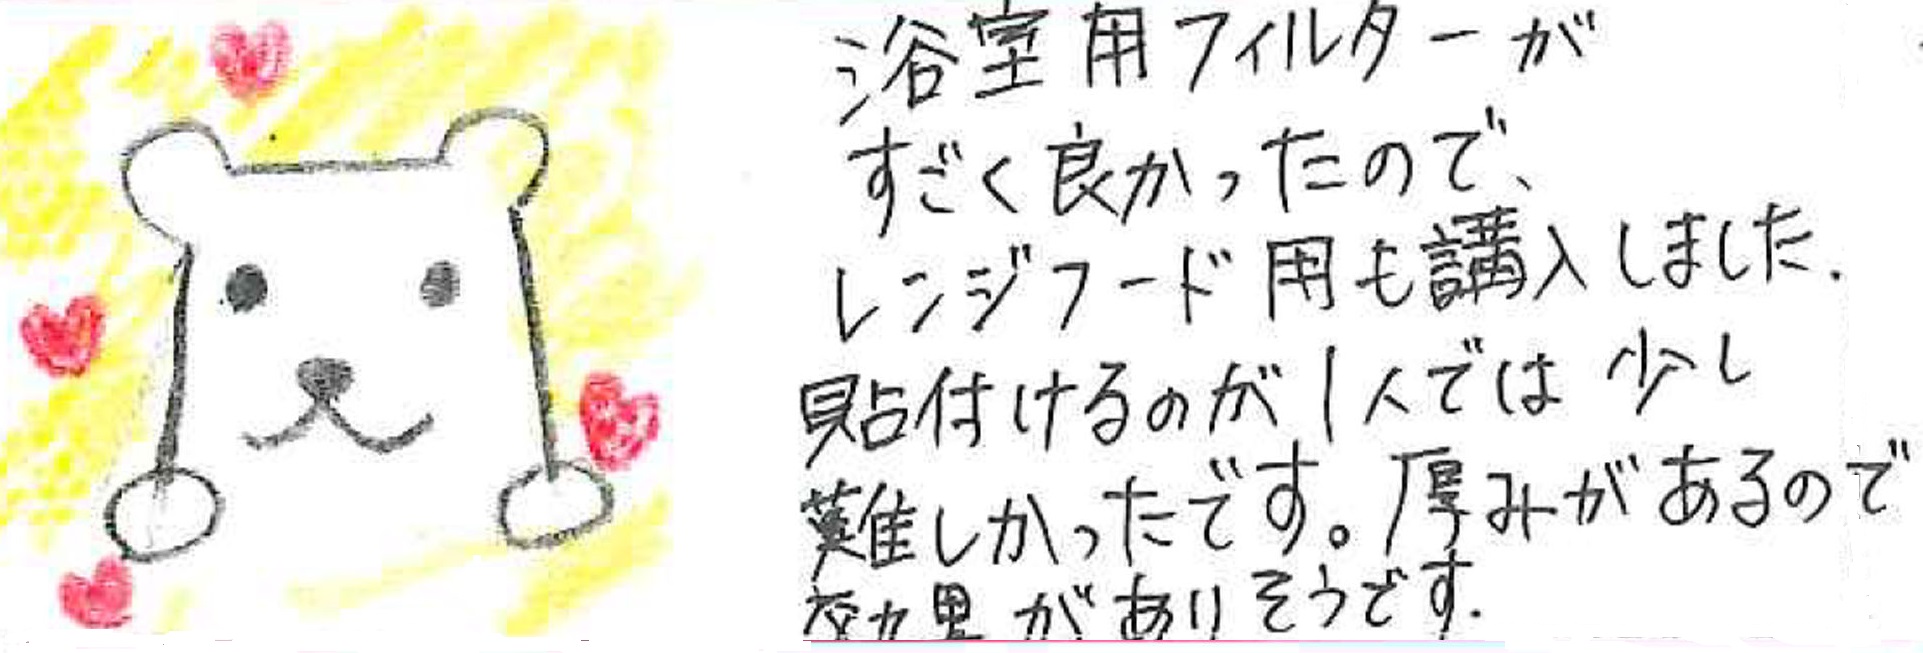 浴室用フィルターが
すごく良かったので、
レンジフード用も講入しました.
貼付けるのが1人では少し
難しかったです。厚みがあるので
効果がありそうです.